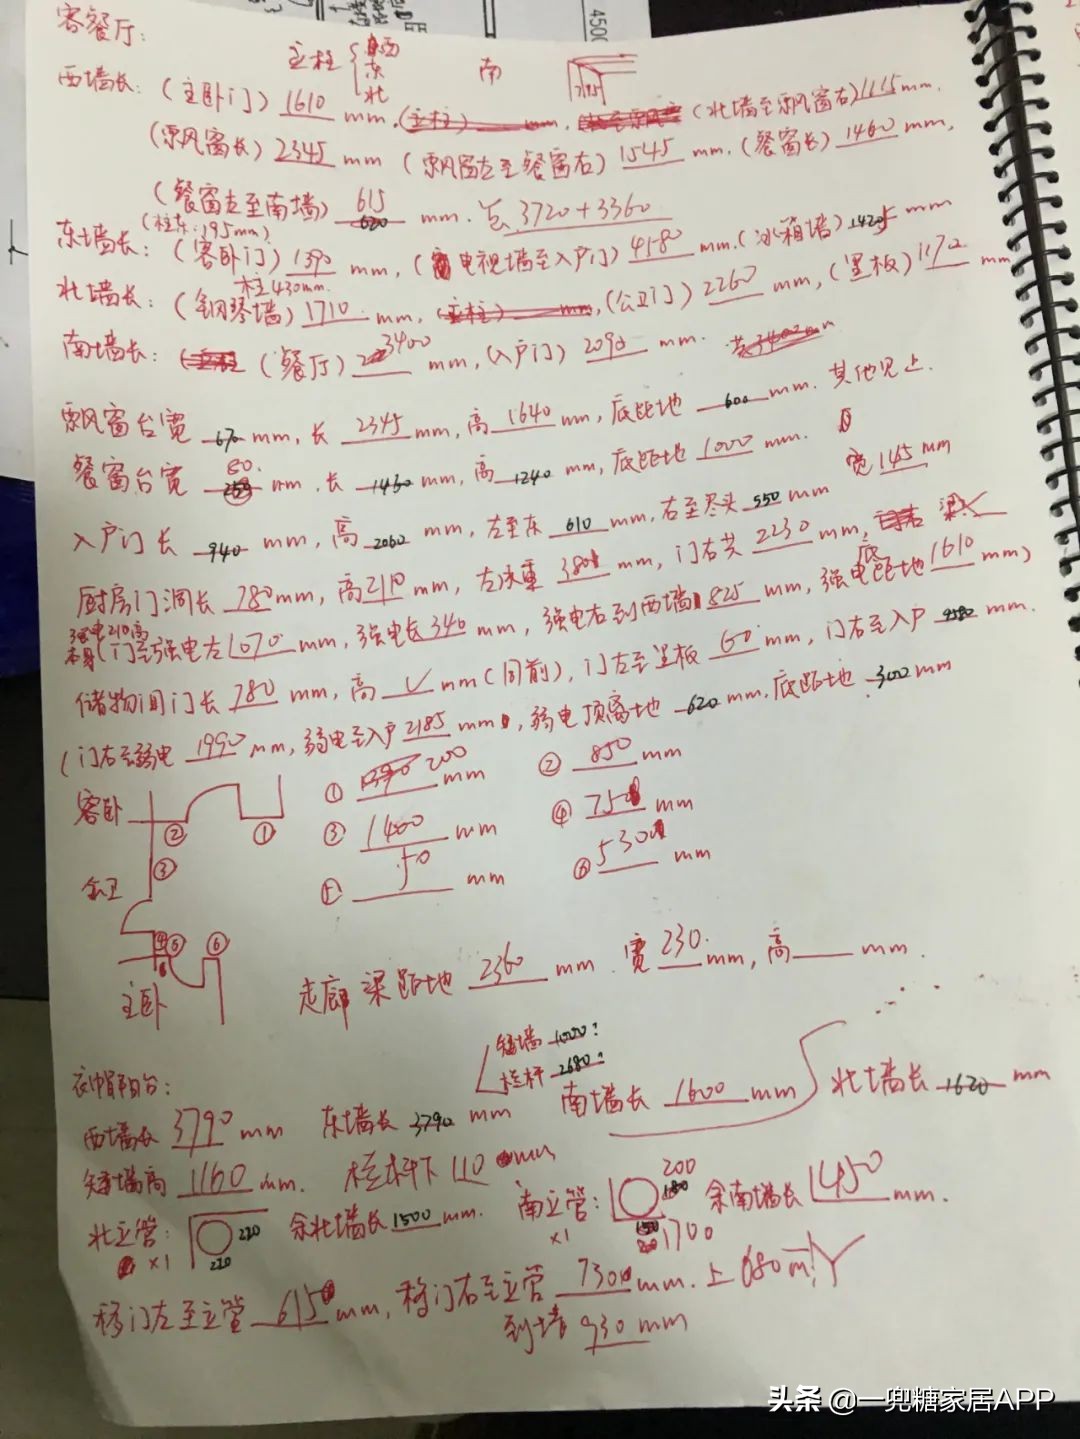 4500
客餐厅:
主柱 西 东 北 南
西墙长:(主卧门)1610 mm.(主柱) mm.(北墙至飘风窗右)1115mm.
(飘风窗长)2345 mm (飘风窗左至餐窗右)1545 mm.(餐窗长)1460 mm,
(餐窗左至南墙)615 620 mm. 总3720+3360
(柱东:195mm)
东墙长:(客卧门)1390 mm,(电视墙至入户门)4180 mm.(冰箱墙)1420 mm
柱430mm.
北墙长:(钢琴墙)1710 mm,(主柱) mm,(公卫门)2260 mm,(黑板)1170 mm
南墙长:(餐厅)3400 mm,(入户门)2090 mm.
飘风窗台宽 670 mm,长 2345 mm,高1640 mm,底距地 600 mm.其他见上.
餐窗台宽 80. mm.长 1460 mm,高 1240 mm,底距地 1000 mm.
入户门长 940 mm,高 2060 mm,左至东 610 mm,右至尽头 550 mm 宽145 mm
厨房门洞长 780mm,高2110 mm,左承重 380 mm,门右共 2230 mm,
(门至强电左1070 mm,强电长340 mm,强电右到西墙825 mm,强电底距地1610 mm)
储物间门长 780 mm,高 √ mm(同前),门左至黑板 60 mm,门右至入户 mm.
(门右至弱电 1990 mm,弱电至入户2185 mm,弱电顶离地 620 mm.底距地 300 mm
客卧 ② ① ① 200 mm ② 850 mm
③ ③ 1400 mm ④ 750 mm
公卫 ⑤ 50 mm ⑥ 530 mm
④ ⑤ ⑥
主卧 走廊梁距地 2360 mm.宽230.mm,高 mm.
矮墙 1000?
栏杆 2680?
西墙长 3790 mm 东墙长 3790 mm 南墙长 1600 mm 北墙长 1620 mm
矮墙高 1160 mm. 栏杆下 110 mm
北立管: 210 210 ×1 余北墙长1500 mm. 南立管: ×1 200 1700 余南墙长1450 mm.
移门左至立管 615 mm,移门右至立管 730 mm.上
到墙 930 mm
头条 @一兜糖家居APP